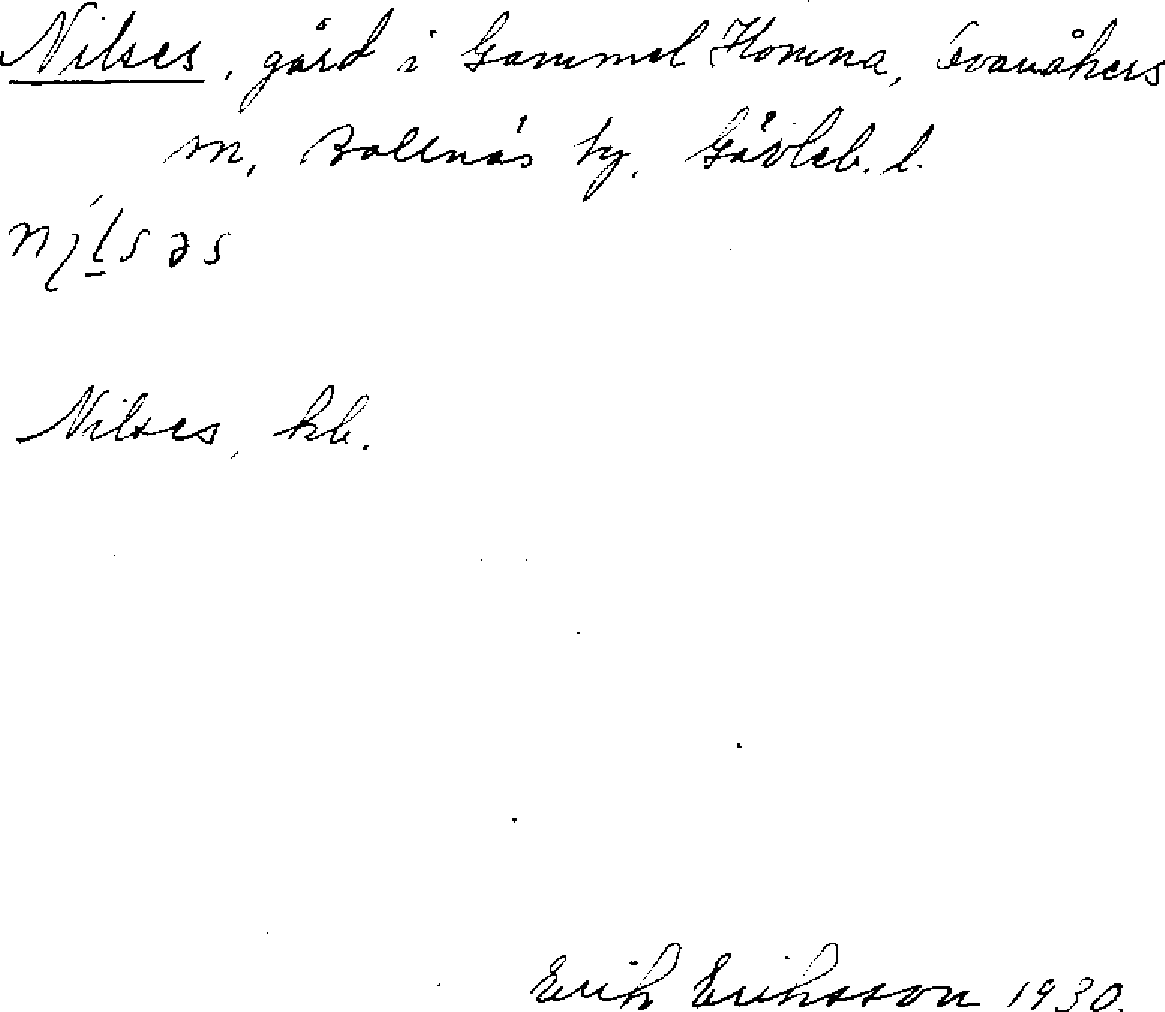 Nilses, gård i Gammel Homna, Ovanåkers
sn, Bollnäs tg, Gävleb. l.
Nilses, kb.
Erik Eriksson 1930.